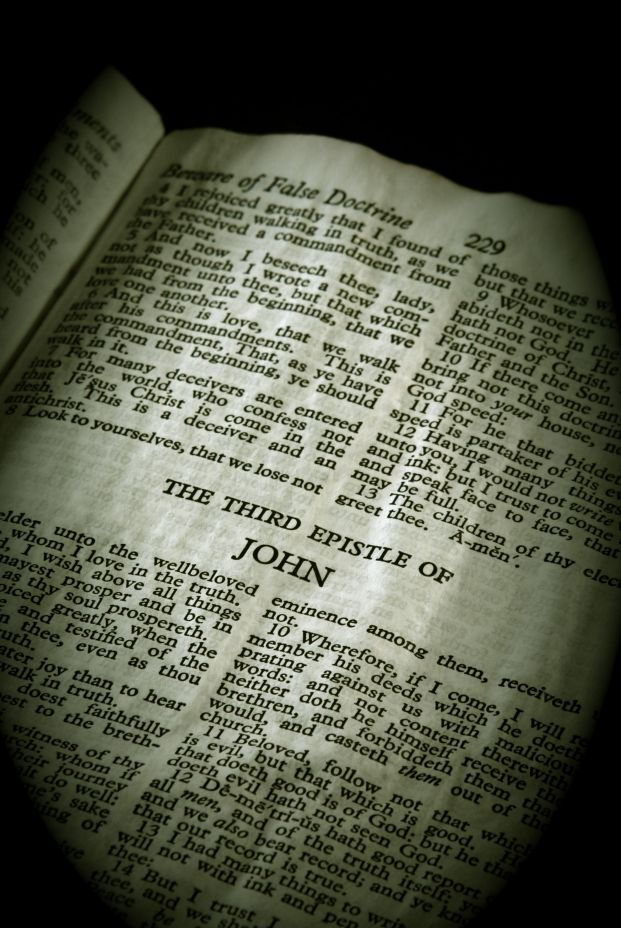 ments
he wa-
three
men,
er, for
ich he
op of
f: he
made
not
his
Beware of False Doctrine 229
4 I rejoiced greatly that I found of
thy children walking in truth, as we
have received a commandment from
the Father.
5 And now I beseech thee, lady,
not as though I wrote a new com-
mandment unto thee, but that which
we had from the beginning, that we
love one another.
6 And this is love, that we walk
after his commandments. This is
the commandment, That, as ye have
heard from the beginning, ye should
walk in it.
7 For many deceivers are entered
into the world, who confess not
that Jē'sus Christ is come in the
flesh. This is a deceiver and an
antichrist.
8 Look to yourselves, that we lose not
those things
but that we
9 Whosoever
abideth not in the
hath not God. He
doctrine of Christ,
Father and the Son.
10 If there come
bring not this doctrin
not into your house,
God speed:
11 For he that bidde
speed is partaker of his
12 Having many things
unto you, I would not write
and ink: but I trust to come
and speak face to face, that
may be full.
13 The children of thy elec
greet thee. Ā-mĕn'.
THE THIRD EPISTLE OF
JOHN
elder unto the wellbeloved
whom I love in the truth.
d, I wish above all things
mayest prosper and be in
as thy soul prospereth.
oiced greatly, when the
and testified of the
n thee, even as thou
ruth.
ater joy than to hear
walk in truth.
doest faithfully
est to the breth-
witness of thy
rch: whom if
their journey
alt do well:
me's sake
ing of
eminence among them, receiveth
not.
10 Wherefore, if I come, I will re
member his deeds which he doeth
prating against us with malicious
words: and not content therewith
neither doth he himself receive the
brethren, and forbiddeth them tha
would, and casteth them out of the
church.
11 Beloved, follow not that which
is evil, but that which is good. H
that doeth good is of God: but he tha
doeth evil hath not seen God.
12 Dē-mē'trĭ-ŭs hath good report
all men, and of the truth itself: ye
and we also bear record; and ye kno
that our record is true.
13 I had many things to write
will not with ink and pen
thee:
14 But I trust I
thee, and we sha